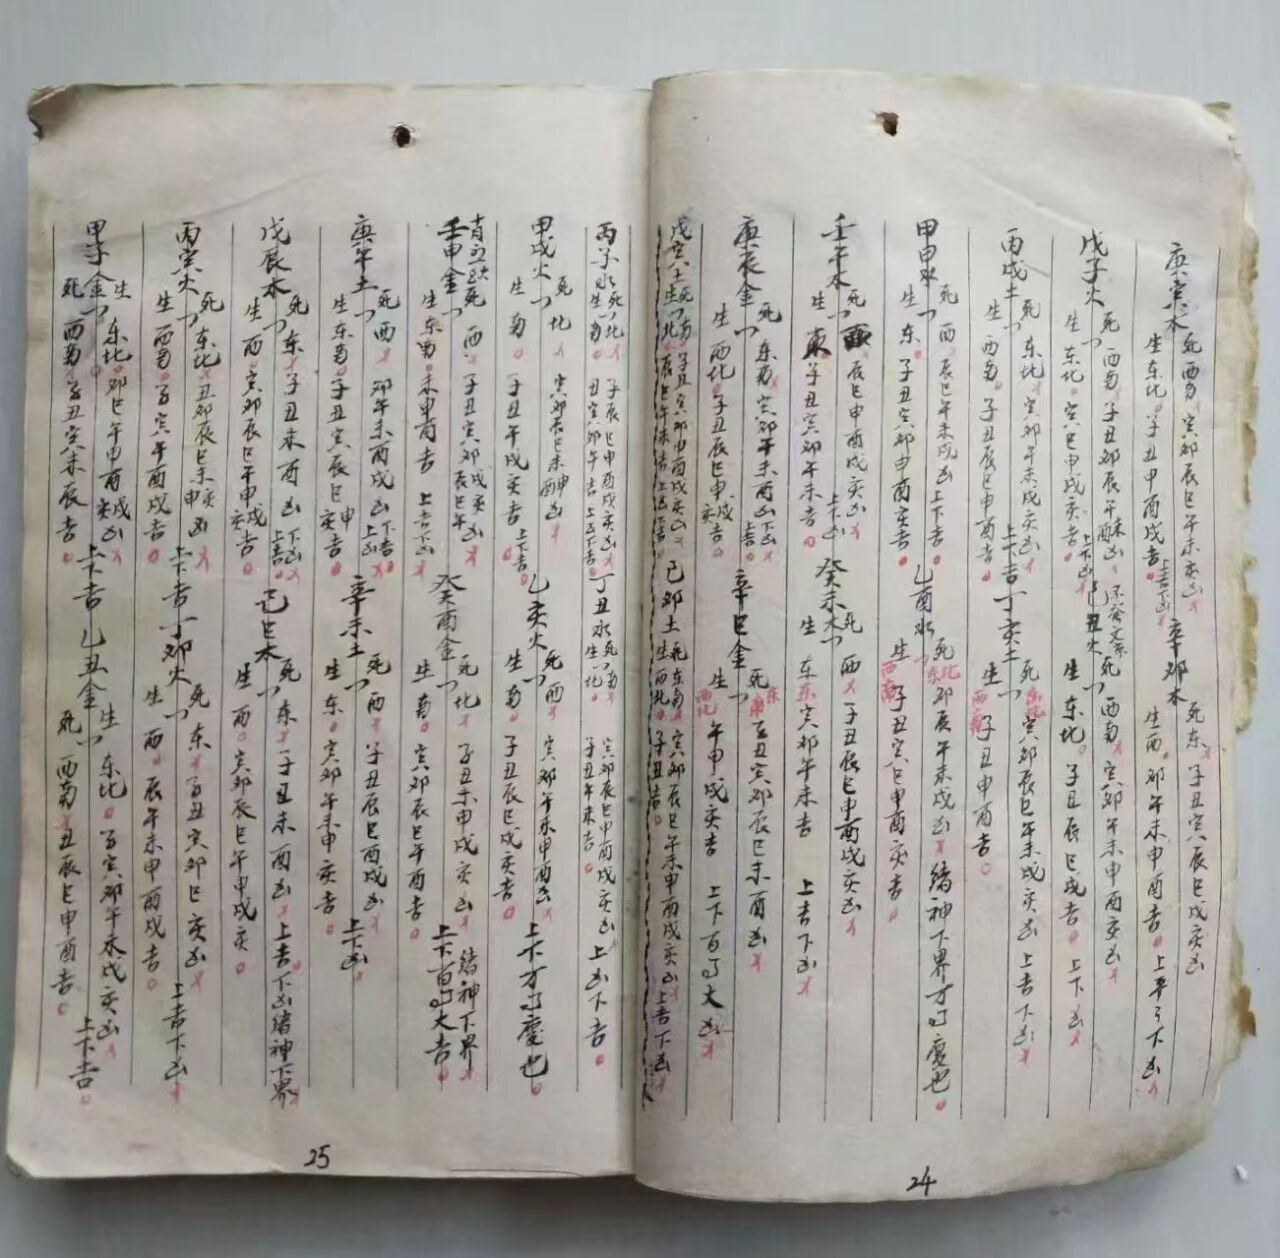 庚寅木
死西南 寅卯辰巳午未亥凶
生东北 子丑申酉戌吉
上吉下凶
辛卯木
死东 子丑寅辰巳戌亥凶
生西 卯午未申酉吉 上平下凶
戊子火
死西南 子丑卯辰午酉未凶
生东北 寅巳申戌亥吉
上下凶
己丑火
死西南 寅卯午未申酉亥凶
生东北 子丑辰巳戌吉 上下凶
丙戌土
死东北 寅卯午未戌亥凶
生西南 子丑辰巳申酉吉
上下吉
丁亥土
死东北 寅卯辰巳午未戌亥凶 上吉下凶
生西南 子丑申酉吉
甲申水
死西 辰巳午未戌凶 上下吉
生东 子丑寅卯申酉亥吉
乙酉水
死东北 卯辰午未戌凶 诸神下界方可廋也
生西南 子丑寅巳申酉亥吉
壬午木
死西 辰巳申酉戌亥凶
生东 子丑寅卯午未吉
上下凶
癸未木
死西 子丑辰巳申酉戌亥凶
生东 寅卯午未吉 上吉下凶
庚辰金
死东南 寅卯午未酉凶
生西北 子丑辰巳申戌亥吉
上吉下凶
辛巳金
死东南 子丑寅卯辰巳未酉凶
生西北 午申戌亥吉 上下百可大凶
戊寅土
死南 子丑寅卯申酉戌亥凶
生北 辰巳午未吉
己卯土
死东南 寅卯辰巳午未申酉戌亥凶 上吉下凶
生西北 子丑吉
24
丙子水
死北 子辰巳申酉戌亥凶
生南 丑寅卯午吉
丁丑水
死南 寅卯辰巳申酉戌亥凶 上凶下吉
生北 子丑午未吉
甲戌火
死北 寅卯辰巳未申酉凶
生南 子丑午戌亥吉
上下吉
乙亥火
死西 寅卯午未申酉凶 上下方可廋也
生南 子丑辰巳戌亥吉
壬申金
死西 子丑寅卯辰巳午戌亥凶
生东南 未申酉吉 上吉下凶
癸酉金
死北 子丑未申戌亥凶 诸神下界
生南 寅卯辰巳午酉吉 上下百可大吉
庚午土
死西 卯午未酉戌凶 上凶下吉
生东南 子丑寅辰巳申亥吉
辛未土
死西 子丑辰巳酉戌凶
生东 寅卯午未申亥吉
上下凶
戊辰木
死东 子丑未酉凶 上吉下凶
生西 寅卯辰巳午申戌亥吉
己巳木
死东 子丑未酉凶 上吉下凶诸神下界
生西 寅卯辰巳午申戌亥
丙寅火
死东北 丑卯辰巳未申亥凶
生西南 子寅午酉戌吉
上吉
丁卯火
死东 子丑寅卯巳亥凶
生西 辰午未申酉戌吉 上吉下凶
甲子金
生东北 卯巳午申酉戌亥凶
死西南 子丑寅未辰吉
上下吉
乙丑金
生东北 子寅卯午未戌亥凶
死西南 丑辰巳申酉吉 上下吉
25